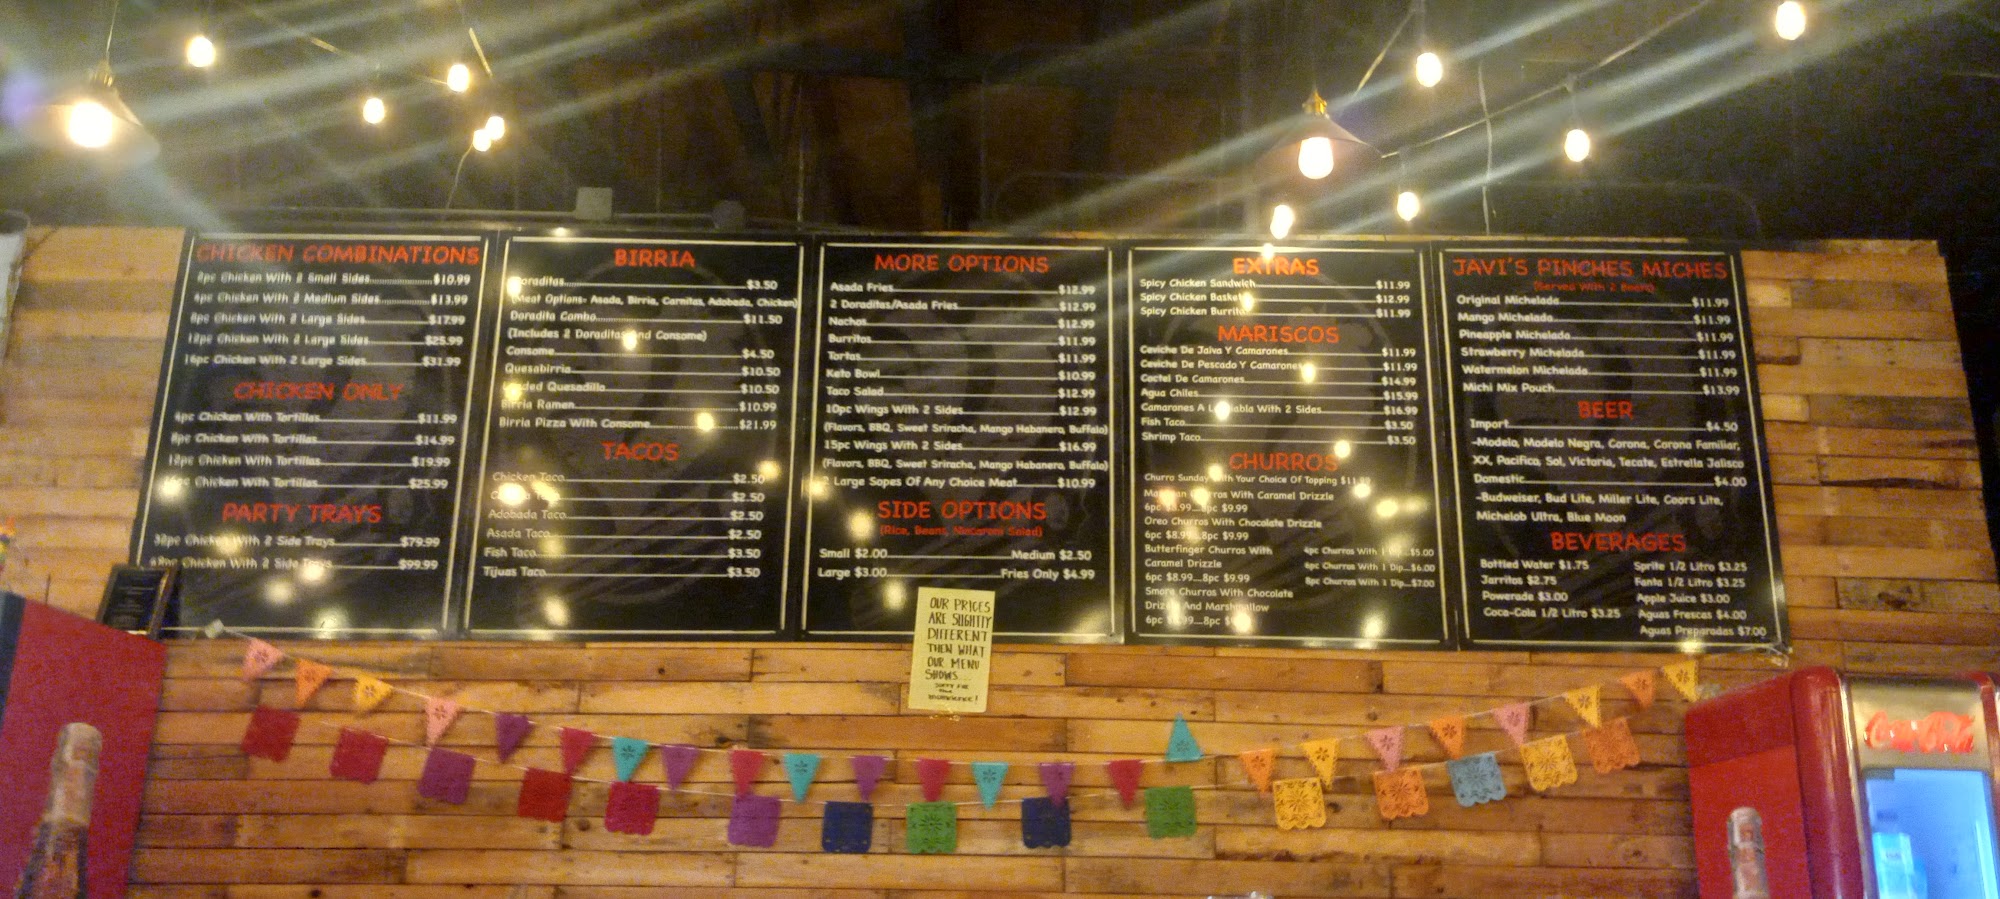 CHICKEN COMBINATIONS
2pc Chicken With 2 Small Sides $10.99
4pc Chicken With 2 Medium Sides $13.99
8pc Chicken With 2 Large Sides $17.99
12pc Chicken With 2 Large Sides $25.99
16pc Chicken With 2 Large Sides $31.99
CHICKEN ONLY
4pc Chicken With Tortillas $11.99
8pc Chicken With Tortillas $14.99
12pc Chicken With Tortillas $19.99
Chicken With Tortillas $25.99
PARTY TRAYS
Chicken With 2 Side Trays $79.99
Chicken With 2 Side Trays $99.99
BIRRIA
Doraditas $3.50
(Meat Options- Asada, Birria, Carnitas, Adobada, Chicken)
Doradita Combo $11.50
(Includes 2 Doraditas And Consome)
Consome $4.50
Quesabirria $10.50
Loaded Quesadilla $10.50
Birria Ramen $10.99
Birria Pizza With Consome $21.99
TACOS
Chicken Taco $2.50
$2.50
Adobada Taco $2.50
Asada Taco $2.50
Fish Taco $3.50
Tijuas Taco $3.50
MORE OPTIONS
Asada Fries $12.99
2 Doraditas/Asada Fries $12.99
Nachos $12.99
Burritos $11.99
Tortas $11.99
Keto Bowl $10.99
Taco Salad $12.99
10pc Wings With 2 Sides $12.99
(Flavors, BBQ, Sweet Sriracha, Mango Habanero, Buffalo)
15pc Wings With 2 Sides $16.99
(Flavors, BBQ, Sweet Sriracha, Mango Habanero, Buffalo)
2 Large Sopes Of Any Choice Meat $10.99
SIDE OPTIONS
(Rice, Beans, Macaroni Salad)
Small $2.00 Medium $2.50
Large $3.00 Fries Only $4.99
OUR PRICES
ARE SLIGHTLY
DIFFERENT
THEN WHAT
OUR MENU
SHOWS...
SORRY FOR
THE
INCONVIENCE!
EXTRAS
Spicy Chicken Sandwich $11.99
Spicy Chicken Basket $12.99
Spicy Chicken Burrito $11.99
MARISCOS
Ceviche De Jaiva Y Camarones $11.99
Ceviche De Pescado Y Camarones $11.99
Coctel De Camarones $14.99
Agua Chiles $15.99
Camarones A La Diabla With 2 Sides $16.99
Fish Taco $3.50
Shrimp Taco $3.50
CHURROS
Churro Sunday With Your Choice Of Topping
Churros With Caramel Drizzle
6pc $8.99...8pc $9.99
Oreo Churros With Chocolate Drizzle
6pc $8.99...8pc $9.99
Butterfinger Churros With
Caramel Drizzle
6pc $8.99...8pc $9.99
Smore Churros With Chocolate
Drizzle And Marshmallow
6pc 8pc
4pc Churros With 1 Dip...$5.00
6pc Churros With 1 Dip...$6.00
8pc Churros With 1 Dip...$7.00
JAVI'S PINCHES MICHES
(Served With 2 Beers)
Original Michelada $11.99
Mango Michelada $11.99
Pineapple Michelada $11.99
Strawberry Michelada $11.99
Watermelon Michelada $11.99
Michi Mix Pouch $13.99
BEER
Import $4.50
-Modelo, Modelo Negra, Corona, Corona Familiar,
XX, Pacifico, Sol, Victoria, Tecate, Estrella Jalisco
Domestic $4.00
-Budweiser, Bud Lite, Miller Lite, Coors Lite,
Michelob Ultra, Blue Moon
BEVERAGES
Bottled Water $1.75
Jarritos $2.75
Powerade $3.00
Coca-Cola 1/2 Litro $3.25
Sprite 1/2 Litro $3.25
Fanta 1/2 Litro $3.25
Apple Juice $3.00
Aguas Frescas $4.00
Aguas Preparadas $7.00
Coca-Cola